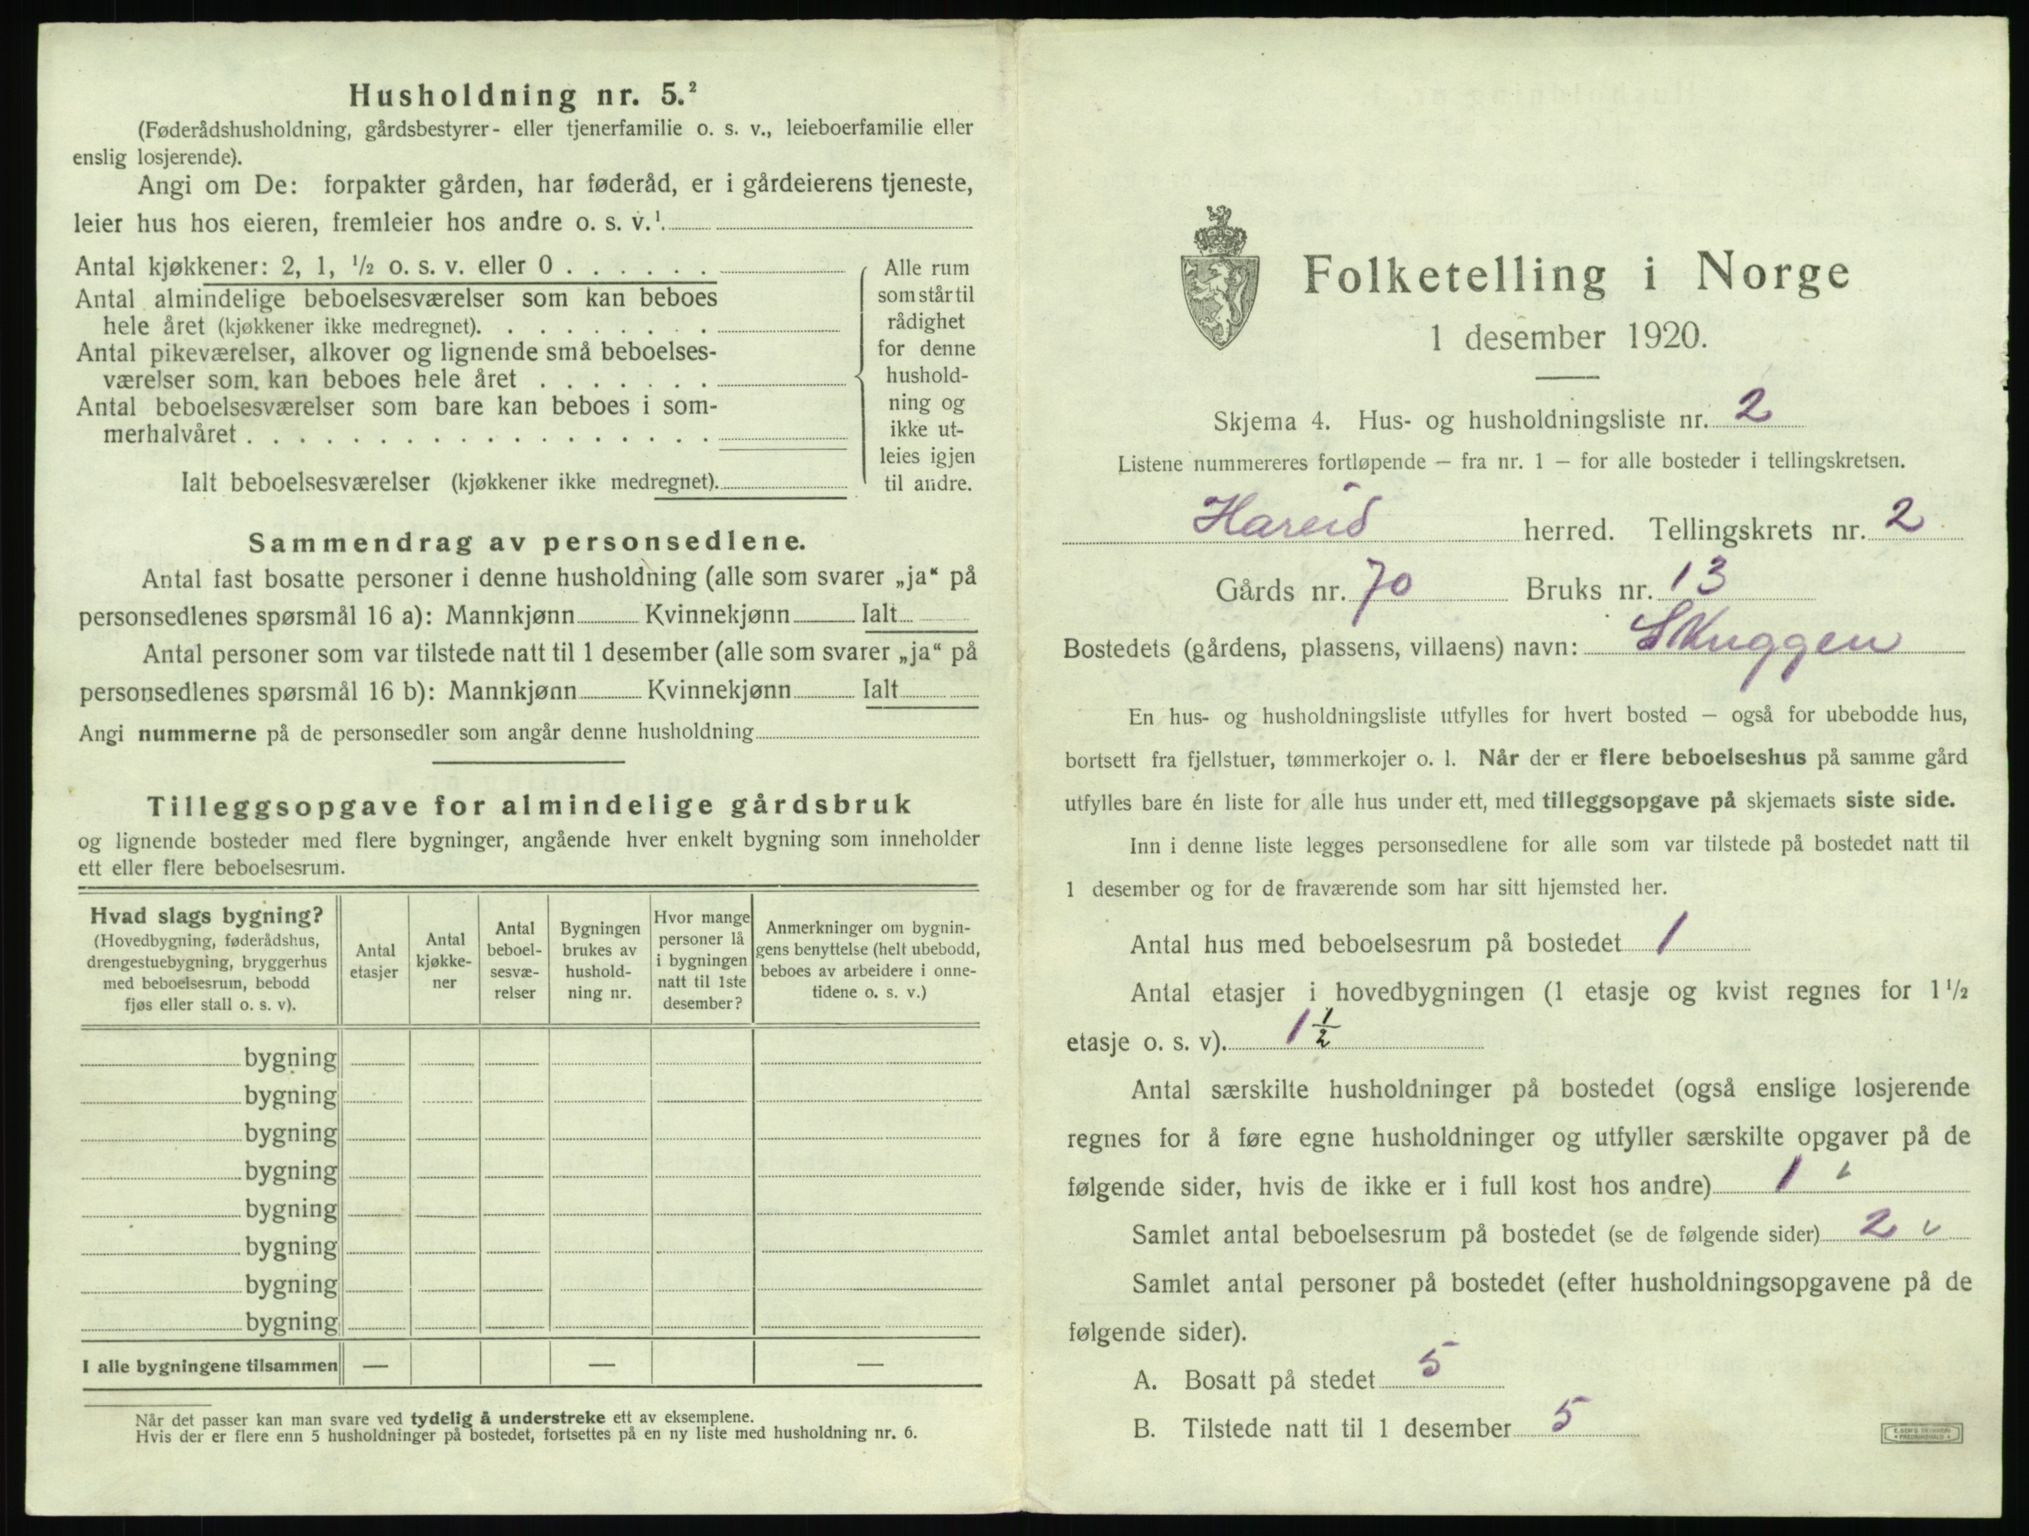 Husholdning nr. 5.²
(Føderådshusholdning, gårdsbestyrer- eller tjenerfamilie o. s. v., leieboerfamilie eller
enslig losjerende).
Angi om De: forpakter gården, har føderåd, er i gårdeierens tjeneste,
leier hus hos eieren, fremleier hos andre o. s. v.¹.
Antal kjøkkener: 2, 1, ½ o. s. v. eller 0 . . . . . .
Antal almindelige beboelsesværelser som kan beboes
hele året (kjøkkener ikke medregnet). . . . . . . . .
Antal pikeværelser, alkover og lignende små beboelses-
værelser som kan beboes hele året . . . . . . .
Antal beboelsesværelser som bare kan beboes i som-
merhalvåret . . . . . . . . . . . . . . . . . .
Ialt beboelsesværelser (kjøkkener ikke medregnet).
Alle rum
som står til
rådighet
for denne
hushold-
ning og
ikke ut-
leies igjen
til andre.
Sammendrag av personsedlene.
Antal fast bosatte personer i denne husholdning (alle som svarer „ja“ på
personsedlenes spørsmål 16 a): Mannkjønn Kvinnekjønn Ialt
Antal personer som var tilstede natt til 1 desember (alle som svarer „ja“ på
personsedlenes spørsmål 16 b): Mannkjønn Kvinnekjønn Ialt
Angi nummerne på de personsedler som angår denne husholdning
Tilleggsopgave for almindelige gårdsbruk
og lignende bosteder med flere bygninger, angående hver enkelt bygning som inneholder
ett eller flere beboelsesrum.
Hvad slags bygning?
(Hovedbygning, føderådshus,
drengestuebygning, bryggerhus
med beboelsesrum, bebodd
fjøs eller stall o. s. v).
Antal
etasjer
Antal
kjøkke-
ner
Antal
beboel-
sesvæ-
relser
Bygningen
brukes av
hushold-
ning nr.
Hvor mange
personer lå
i bygningen
natt til 1ste
desember?
Anmerkninger om bygnin-
gens benyttelse (helt ubebodd,
beboes av arbeidere i onne-
tidene o. s. v.)
bygning
bygning
bygning
bygning
bygning
bygning
bygning
bygning
I alle bygningene tilsammen — — —
Når det passer kan man svare ved tydelig å understreke ett av eksemplene.
Hvis der er flere enn 5 husholdninger på bostedet, fortsettes på en ny liste med husholdning nr. 6.
Folketelling i Norge
1 desember 1920.
Skjema 4. Hus- og husholdningsliste nr. 2
Listene nummereres fortløpende – fra nr. 1 – for alle bosteder i tellingskretsen.
Hareid herred. Tellingskrets nr. 2
Gårds nr. 70 Bruks nr. 13
Bostedets (gårdens, plassens, villaens) navn: Skuggen
En hus- og husholdningsliste utfylles for hvert bosted – også for ubebodde hus,
bortsett fra fjellstuer, tømmerkojer o. l. Når der er flere beboelseshus på samme gård
utfylles bare én liste for alle hus under ett, med tilleggsopgave på skjemaets siste side.
Inn i denne liste legges personsedlene for alle som var tilstede på bostedet natt til
1 desember og for de fraværende som har sitt hjemsted her.
Antal hus med beboelsesrum på bostedet 1
Antal etasjer i hovedbygningen (1 etasje og kvist regnes for 1½
etasje o. s. v). 1½
Antal særskilte husholdninger på bostedet (også enslige losjerende
regnes for å føre egne husholdninger og utfyller særskilte opgaver på de
følgende sider, hvis de ikke er i full kost hos andre) 1
Samlet antal beboelsesrum på bostedet (se de følgende sider) 2
Samlet antal personer på bostedet (efter husholdningsopgavene på de
følgende sider).
A. Bosatt på stedet 5
B. Tilstede natt til 1 desember 5